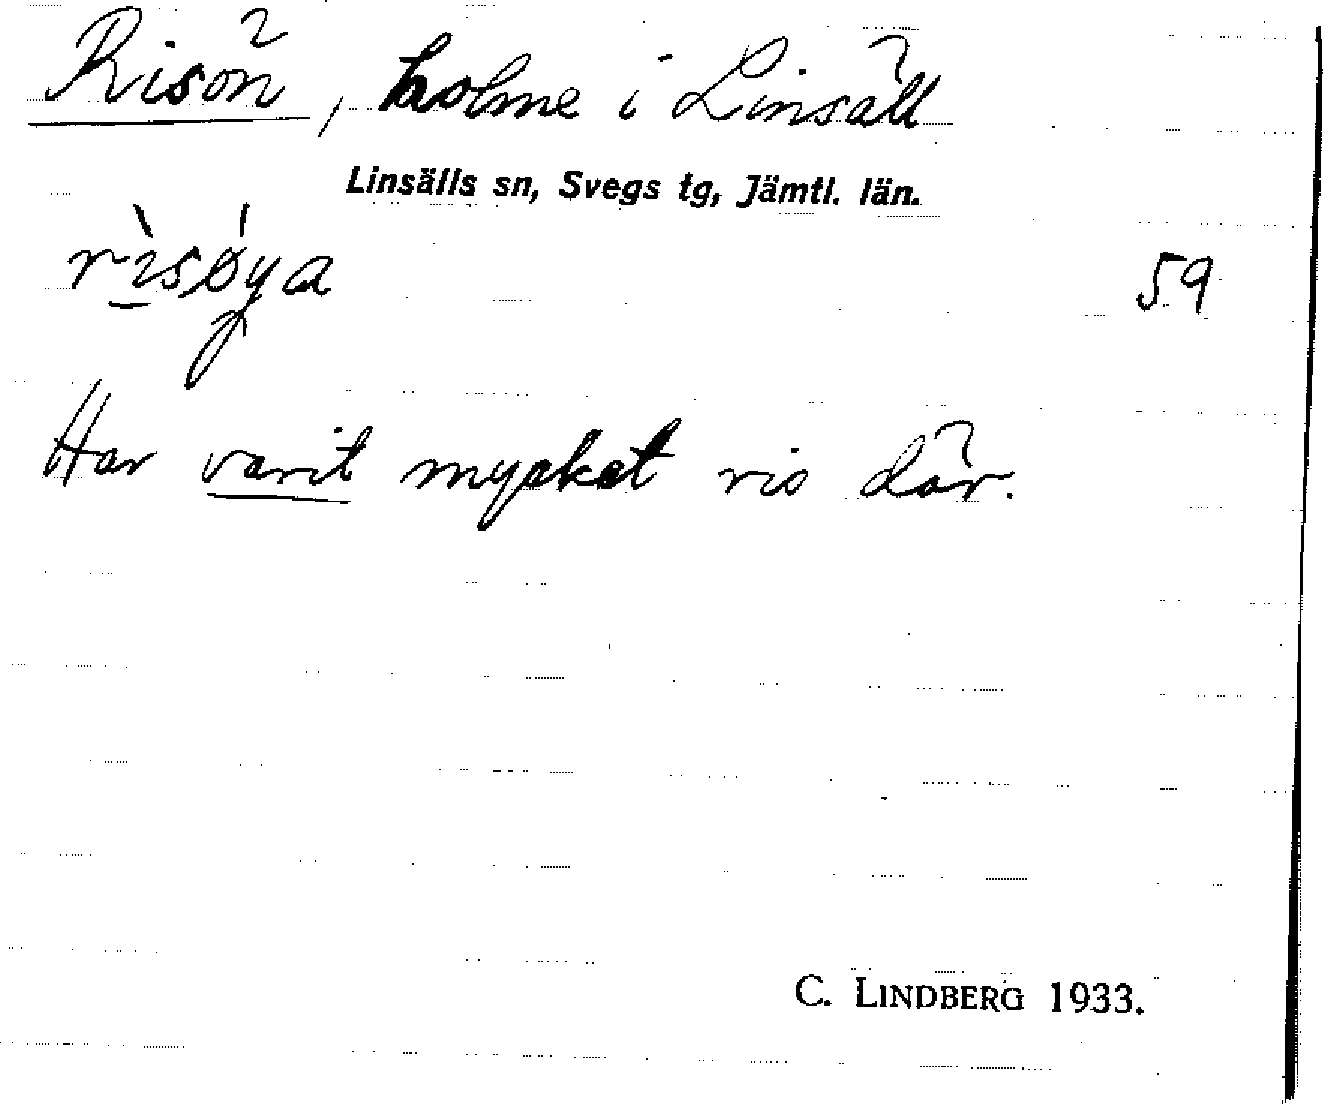 Risön, holme i Linsäll
Linsälls sn, Svegs tg, Jämtl. län.
rìsǿya 59
Har varit mycket ris där.
C. LINDBERG 1933.